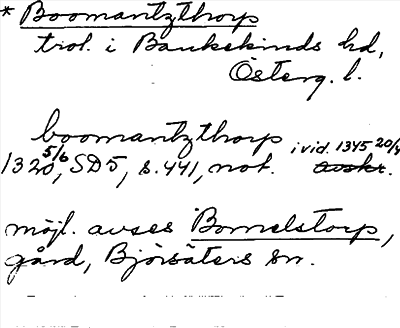 * Boomantzthorp
trol. i Bankekinds hd,
Österg. l.
boomantzthorp
1320 5/6, SD5, s. 441, not. i vid. 1345 20/4 avskr.
möjl. avses Bomelstorp,
gård, Björsäters sn.